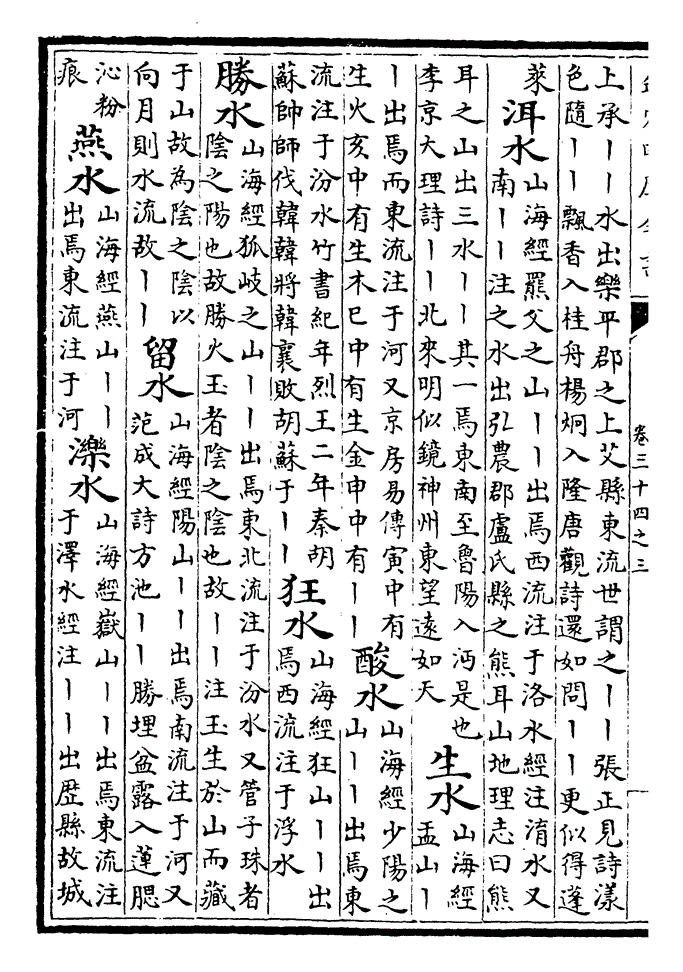 卷三十四之三
上承｜｜水出樂平郡之上艾縣東流世謂之｜｜張正見詩漾
色隨｜｜飄香入桂舟楊炯入隆唐觀詩還如問｜｜更似得蓬
萊
洱水
山海經羆父之山｜｜出焉西流注于洛水經注淯水又
南｜｜注之水出弘農郡盧氏縣之熊耳山地理志曰熊
耳之山出三水｜｜其一焉東南至魯陽入沔是也
李京大理詩｜｜北來明似鏡神州東望遠如天
生水
山海經
盂山｜
｜出焉而東流注于河又京房易傳寅中有
生火亥中有生木巳中有生金申中有｜｜
酸水
山海經少陽之
山｜｜出焉東
流注于汾水竹書紀年烈王二年秦胡
蘇帥師伐韓韓將韓襄敗胡蘇于｜｜
狂水
山海經狂山｜｜出
焉西流注于浮水
勝水
山海經狐岐之山｜｜出焉東北流注于汾水又管子珠者
陰之陽也故勝火玉者陰之陰也故｜｜注玉生於山而藏
于山故為陰之陰以
向月則水流故｜｜
留水
山海經陽山｜｜出焉南流注于河又
范成大詩方池｜｜勝埋盆露入蓮腮
沁粉
痕
燕水
山海經燕山｜｜
出焉東流注于河
濼水
山海經嶽山｜｜出焉東流注
于澤水經注｜｜出歷縣故城